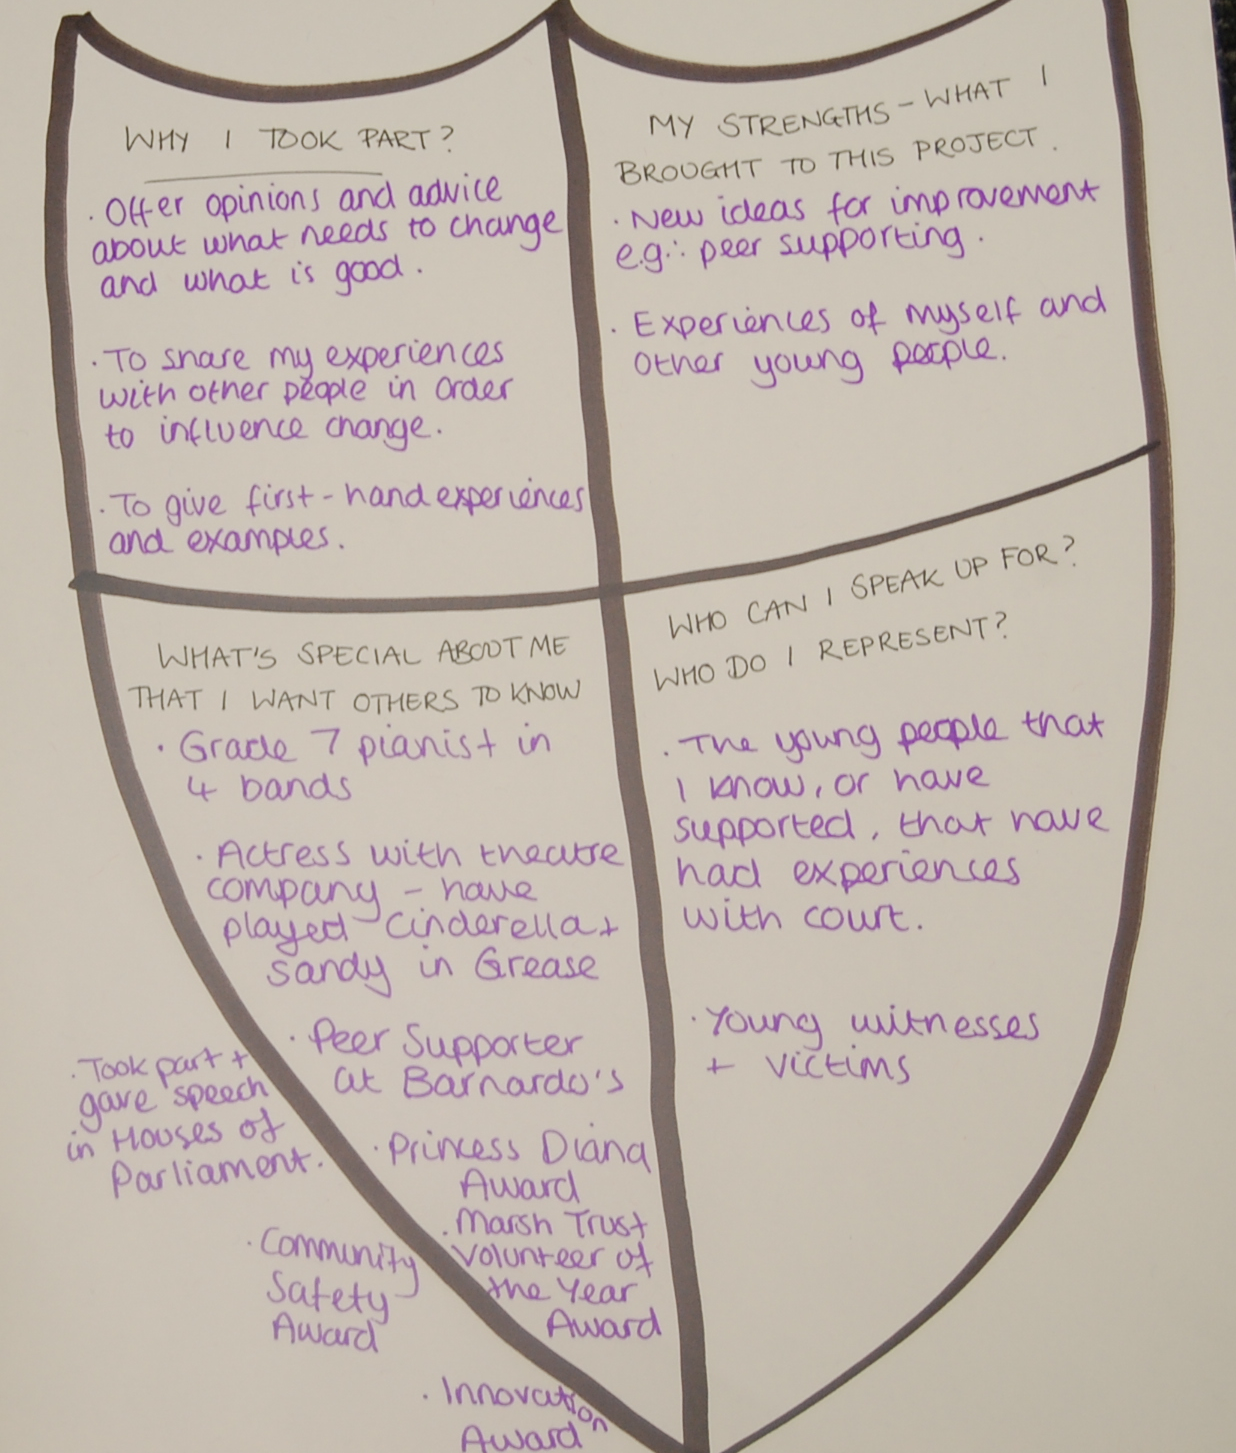 WHY I TOOK PART?
· Offer opinions and advice
about what needs to change
and what is good.
· To share my experiences
with other people in order
to influence change.
· To give first-hand experiences
and examples.
MY STRENGTHS - WHAT I
BROUGHT TO THIS PROJECT.
· New ideas for improvement
e.g.: peer supporting.
· Experiences of myself and
other young people.
WHAT'S SPECIAL ABOUT ME
THAT I WANT OTHERS TO KNOW
· Grade 7 pianist in
4 bands
· Actress with theatre
company - have
played Cinderella +
Sandy in Grease
· Peer Supporter
at Barnardo's
· Princess Diana
Award
· Marsh Trust
Volunteer of
the Year
Award
· Took part +
gave speech
in Houses of
Parliament.
· Community
Safety
Award
· Innovation
Award
WHO CAN I SPEAK UP FOR?
WHO DO I REPRESENT?
· The young people that
I know, or have
supported, that have
had experiences
with court.
· Young witnesses
+ victims